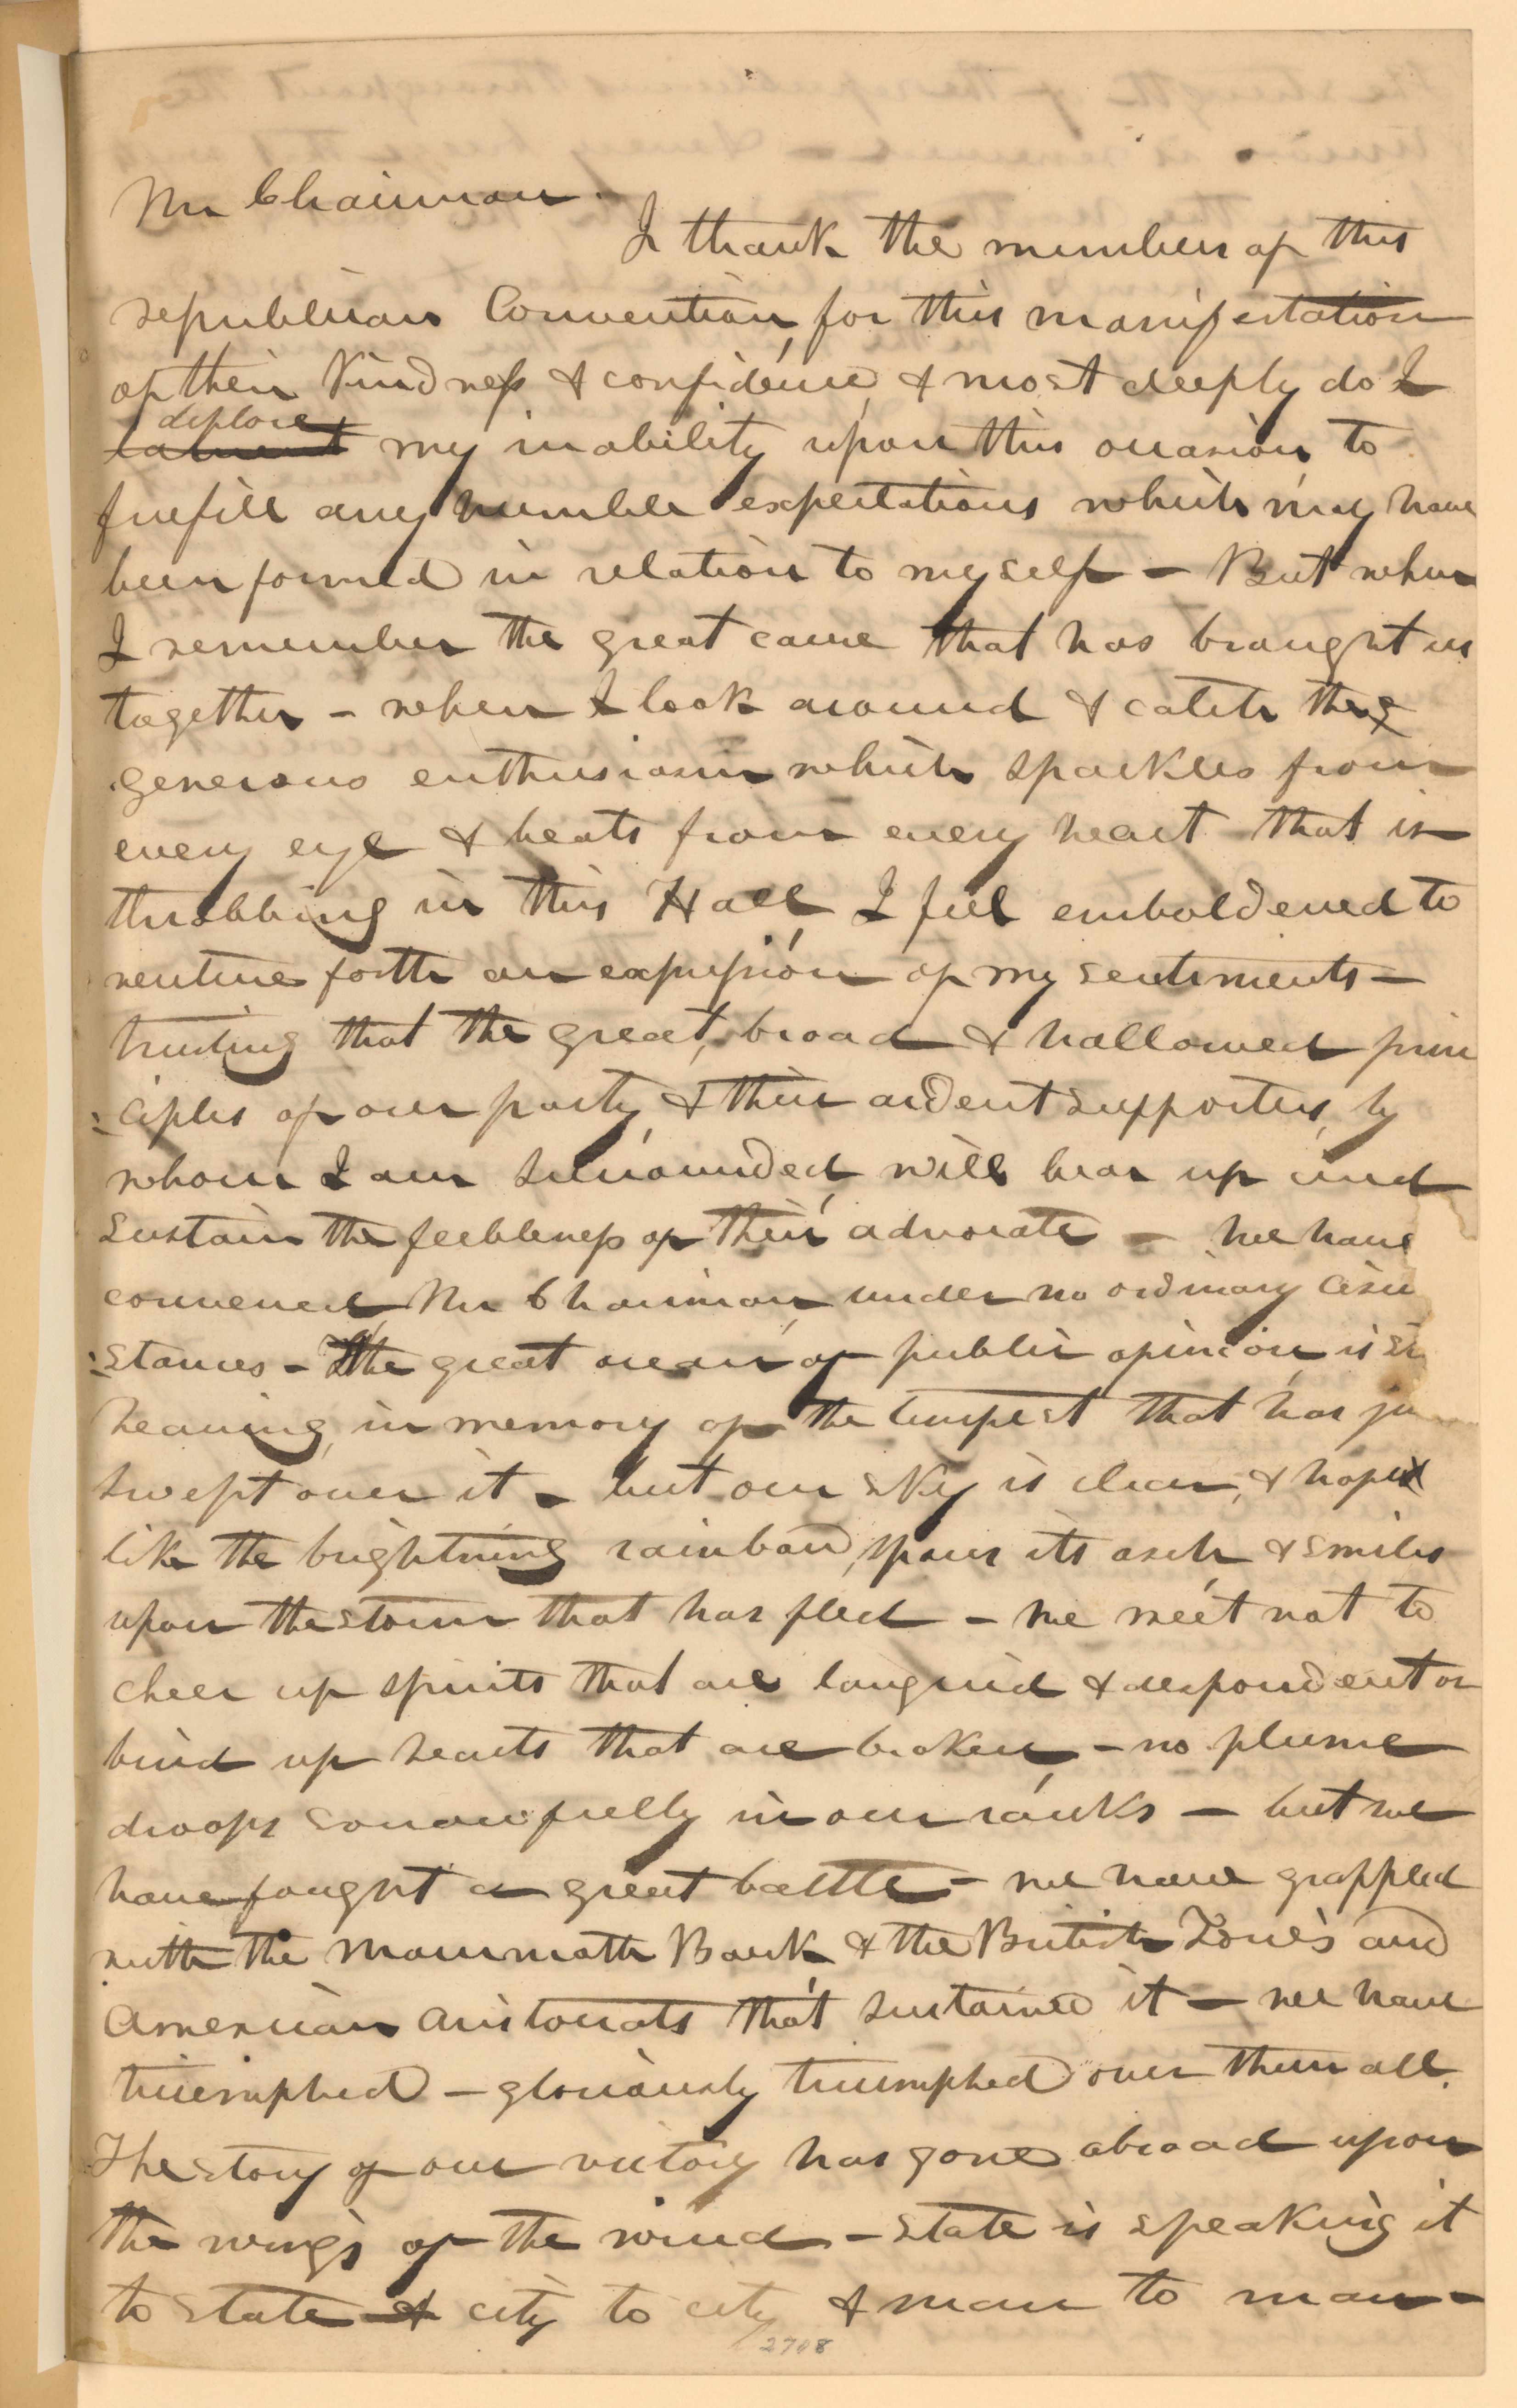 Mr Chairman.
I thank the members of this
republican Convention, for this manifestation
of their kindness & confidence, & most deeply do I
deplore
lament my inability upon this occasion, to
fulfill any humble expectations which may have
been formed in relation to myself - But when
I remember the great cause that has brought us
together - when I look around & catch the
generous enthusiasm which sparkles from
every eye & beats from every heart that is
throbbing in this Hall, I feel emboldened to
venture forth an expression of my sentiments -
trusting that the great, broad & hallowed prin
=ciples of our party, & their ardent supporters, by
whom I am surrounded, will bear up and
sustain the feebleness of their advocate - We have
convened, Mr Chairman, under no ordinary circu
=stances - The great ocean of public opinion, is
heaving, in memory of the tempest that has
swept over it - but our sky is clear, & hope
like the brightning rainbow, spans its arch & smiles
upon the storm that has fled - We meet not to
cheer up spirits that are languid & despondent or
bind up hearts that are broken, - no plume
droops sorrowfully in our ranks - but we
have fought a great battle - we have grappled
with the Mammoth Bank, & the British Tories and
American Aristocrats that sustained it - we have
triumphed - gloriously triumphed over them all.
The story of our victory has gone abroad upon
the wings of the wind - State is speaking it
to State & city to city & man to man -
2708